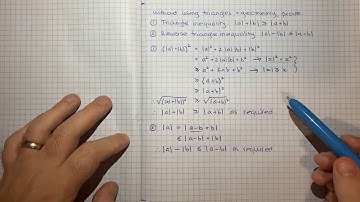 Without using triangles + geometry, prove:
① Triangle inequality |a|+|b| ≥ |a+b|
② Reverse triangle inequality |a|-|b| ≤ |a-b|
① (|a|+|b|)² = |a|² + 2|a||b| + |b|²
= a² + 2|a||b| + b² → |x|² = x²
≥ a² + 2ab + b² → |x| ≥ x
≥ (a+b)²
≥ |a+b|²
∴ √(|a|+|b|)² ≥ √|a+b|²
∴ |a|+|b| ≥ |a+b| as required
② |a| = |a-b+b|
≤ |a-b|+|b|
∴ |a|-|b| ≤ |a-b| as required